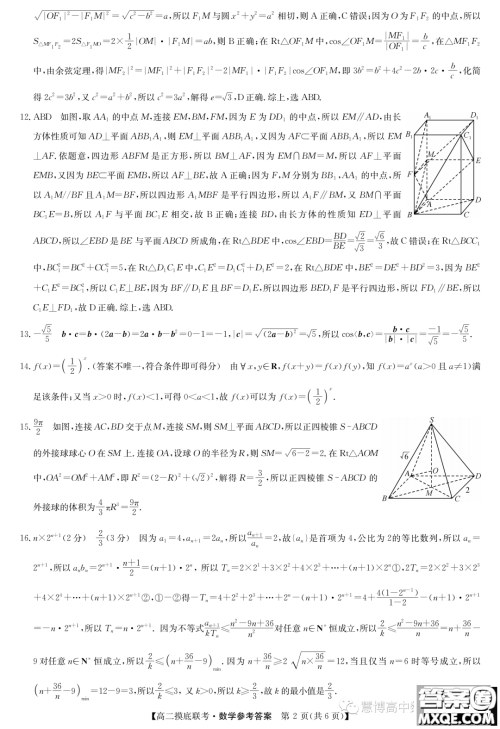 √(|OF₁|²−|F₁M|²)=√(c²−b²)=a,所以F₁M与圆x²+y²=a²相切,则A正确,C错误;因为O为F₁F₂的中点,所以
S△MF₁F₂=2S△F₁MO=2×1/2|OM|·|F₁M|=ab,则B正确;在Rt△OF₁M中,cos∠OF₁M=|MF₁|/|OF₁|=b/c,在△MF₁F₂
中,由余弦定理,得|MF₂|²=|MF₁|²+|F₁F₂|²−2|MF₁|·|F₁F₂|cos∠OF₁M,即3b²=b²+4c²−2b·2c·b/c,化简
得2c²=3b²,又c²=a²+b²,所以c²=3a²,解得e=√3,D正确.综上,选ABD.
12.ABD 如图,取AA₁的中点M,连接EM,BM,FM,因为E为DD₁的中点,所以EM∥AD,由长
方体性质可知AD⊥平面ABB₁A₁,则EM⊥平面ABB₁A₁,又因为AF⊂平面ABB₁A₁,所以EM
⊥AF.依题意,四边形ABFM是正方形,所以BM⊥AF,因为EM∩BM=M,所以AF⊥平面
EMB,又因为BE⊂平面EMB,所以AF⊥BE,故A正确;因为F,M分别为BB₁,AA₁的中点,所
以A₁M∥BF且A₁M=BF,所以四边形A₁MBF是平行四边形,所以A₁F∥BM,又BM∩平面
BC₁E=B,所以A₁F与平面BC₁E相交,故B正确;连接BD,由长方体的性质知ED⊥平面
ABCD,所以∠EBD是BE与平面ABCD所成角,在Rt△BDE中,cos∠EBD=BD/BE=√2/√3=√6/3,故C错误;在Rt△BCC₁
中,BC₁²=BC²+CC₁²=5,在Rt△D₁C₁E中,C₁E²=D₁C₁²+D₁E²=2,在Rt△BDE中,BE²=DE²+BD²=3,因为BE²
+C₁E²=BC₁²,所以C₁E⊥BE,因为BF∥D₁E且BF=D₁E,所以四边形BED₁F是平行四边形,所以FD₁∥BE,所以
C₁E⊥FD₁,故D正确.综上,选ABD.
A₁
D₁
B₁
C₁
M
E
F
A
D
B
C
13.−√5/5 b·c=b·(2a−b)=2a·b−b²=0−1=−1,|c|=√(2a−b)²=√5,所以cos⟨b,c⟩=b·c/(|b|·|c|)=−1/√5=−√5/5.
14.f(x)=(1/2)ˣ.(答案不唯一,符合条件即可得分) 由∀x,y∈R,f(x+y)=f(x)f(y),知f(x)=aˣ(a>0且a≠1)满
足该条件;又当x>0时,f(x)<1,可得0<a<1,故f(x)可以为f(x)=(1/2)ˣ.
15.9π/2 如图,连接AC,BD交于点M,连接SM,则SM⊥平面ABCD,所以正四棱锥S-ABCD
的外接球球心O在SM上.连接OA,设球O的半径为R,则SM=√(6−2)=2.在Rt△AOM
中,OA²=OM²+AM²,即R²=(2−R)²+(√2)²,解得R=3/2,所以正四棱锥S-ABCD的
外接球的体积为4/3πR³=9π/2.
S
√6
O
A
D
M
2
B
C
16.n×2ⁿ⁺¹(2分) 2/3(3分) 因为a₁=4,aₙ₊₁=2aₙ,所以aₙ₊₁/aₙ=2,故{aₙ}是首项为4,公比为2的等比数列,所以aₙ=
2ⁿ⁺¹,所以aₙbₙ=2ⁿ⁺¹·(n+1)/2=(n+1)·2ⁿ.所以Tₙ=2×2¹+3×2²+4×2³+…+(n+1)×2ⁿ①,2Tₙ=2×2²+3×2³
+4×2⁴+…+(n+1)×2ⁿ⁺¹②,①−②得−Tₙ=4+2²+2³+…+2ⁿ−(n+1)·2ⁿ⁺¹=4+4(1−2ⁿ⁻¹)/(1−2)−(n+1)·2ⁿ⁺¹
=−n·2ⁿ⁺¹,所以Tₙ=n·2ⁿ⁺¹.因为不等式aₙ₊₁/(kTₙ)≤(n²−9n+36)/n²对任意n∈N*恒成立,所以2/k≤(n²−9n+36)/n=n+36/n−
9对任意n∈N*恒成立,所以2/k≤(n+36/n−9)min.因为n+36/n≥2√(n×36/n)=12,当且仅当n=6时等号成立,所以
(n+36/n−9)min=12−9=3,所以2/k≤3,又k>0,所以k≥2/3,故k的最小值是2/3.
【高二摸底联考·数学参考答案 第2页(共6页)】
慧博高中
答案圈
MXQE.COM